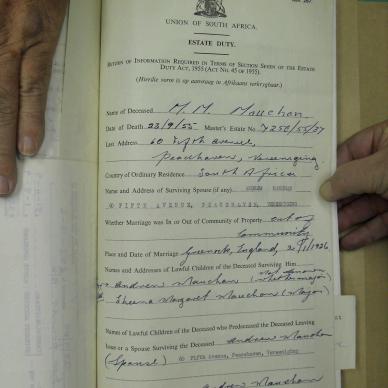 UNION OF SOUTH AFRICA.
ESTATE DUTY.
RETURN OF INFORMATION REQUIRED IN TERMS OF SECTION SEVEN OF THE ESTATE
DUTY ACT, 1955 (ACT NO. 45 OF 1955).
(Hierdie vorm is op aanvraag in Afrikaans verkrygbaar.)
Name of Deceased M. M. Mauchan
Date of Death 23/9/55 Master's Estate No. 7250/55/37
Last Address 60 Fifth Avenue,
Peacehaven, Vereeniging
Country of Ordinary Residence South Africa
Name and Address of Surviving Spouse (if any) ANDREW MAUCHAN
60 FIFTH AVENUE, PEACEHAVEN, VEREENIGING
Whether Marriage was In or Out of Community of Property out of
Community
Place and Date of Marriage Greenock, England, 1926
Names and Addresses of Lawful Children of the Deceased Surviving Him
Andrew Mauchan (Not known whether major)
Sheena Margaret Mauchan (Major)
Names of Lawful Children of the Deceased who Predeceased the Deceased Leaving
Issue or a Spouse Surviving the Deceased Andrew Mauchan
(Spouse) 60 Fifth Avenue, Peacehaven, Vereeniging
Andrew Mauchan